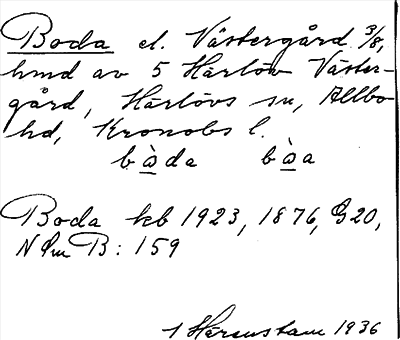 Boda el. Västergård 3/8,
hmd av 5 Härlöv Väster-
gård, Härlövs sn, Allbo
hd, Kronobs l.
bàda bàa
Boda kb 1923, 1876, G20,
N Sm B: 159
1 Härenstam 1936